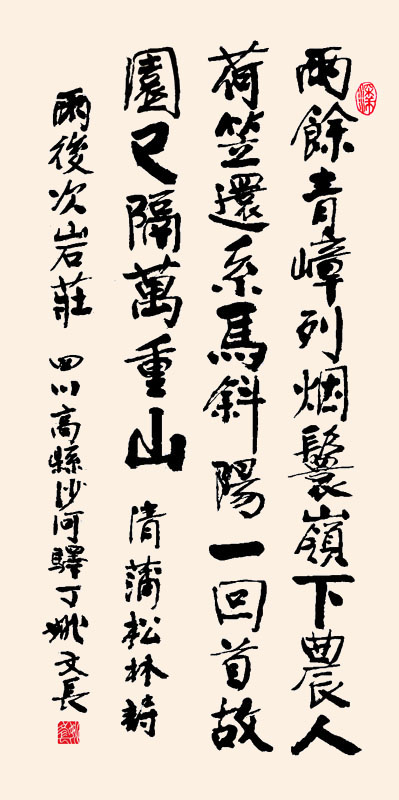 雨餘青嶂列烟鬟嶺下農人
荷笠還系馬斜陽一回首故
園已隔萬重山 清蒲松林詩
雨後次岩莊 四川高縣沙河驛丁姚文長